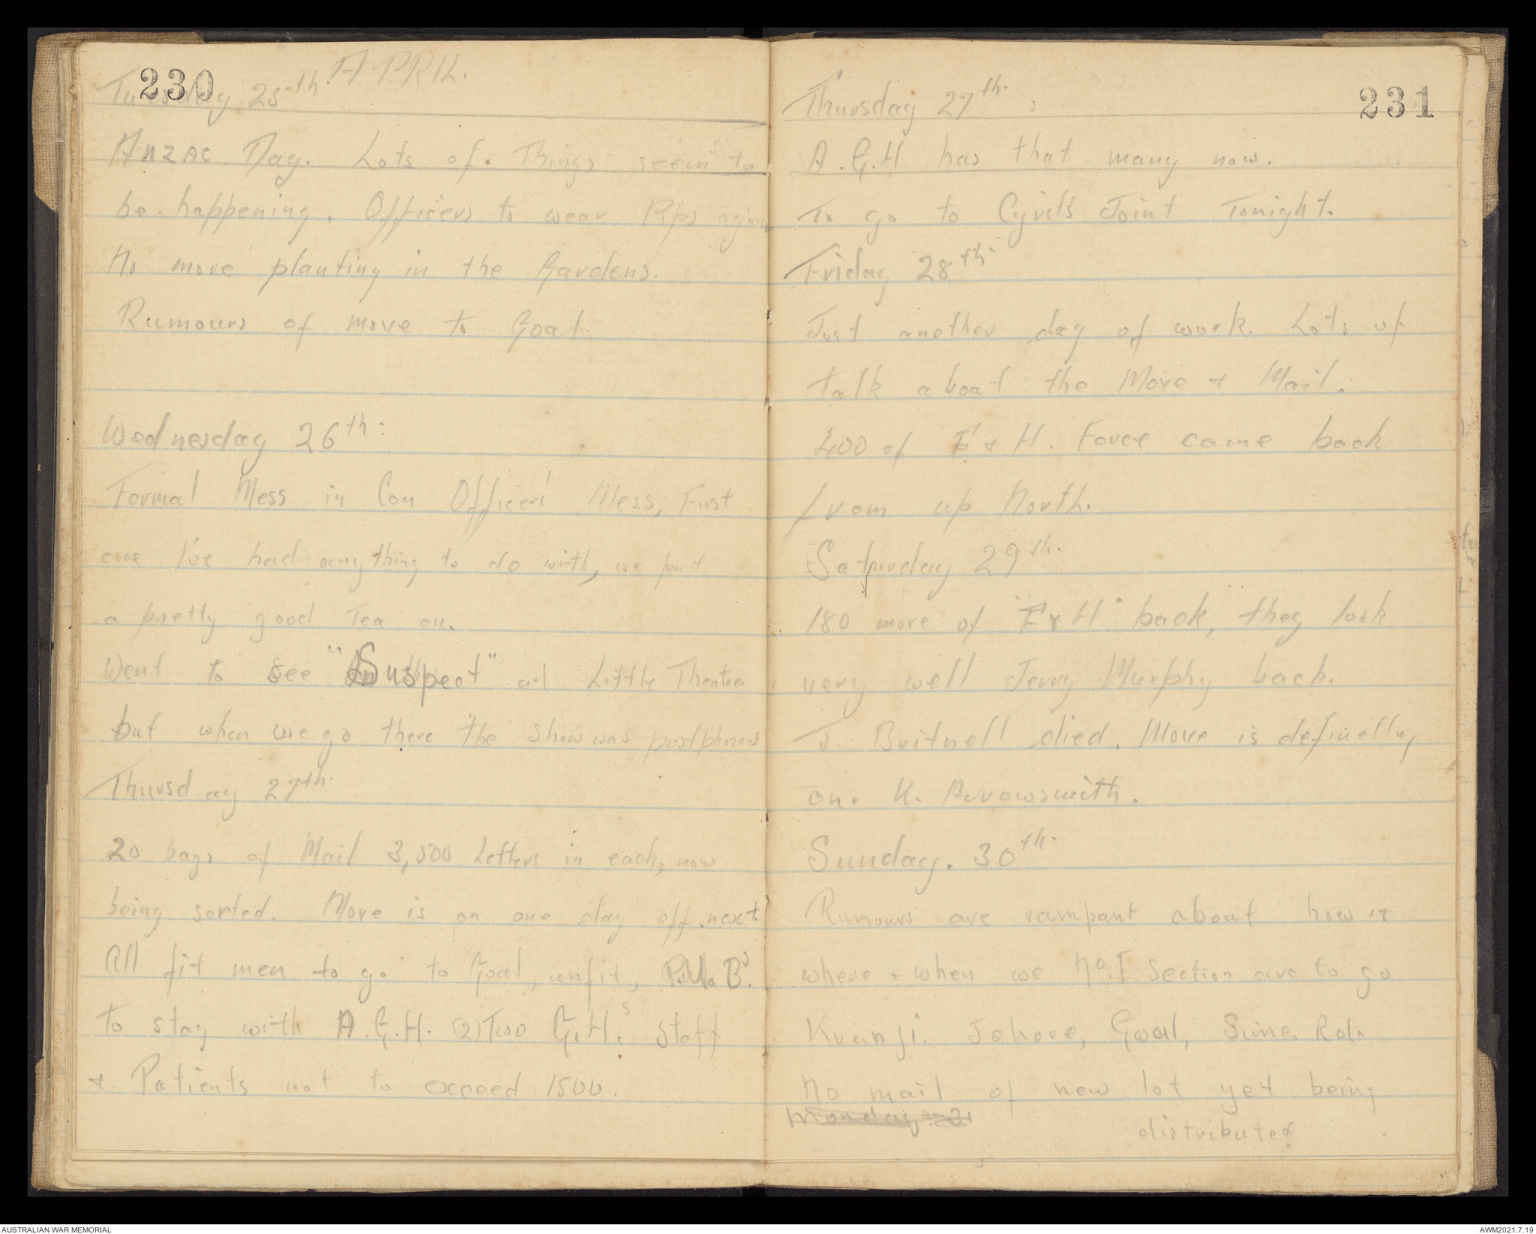 230
APRIL.
Tuesday 25th
Anzac Day. Lots of. Things seem to
be happening. Officers to wear Pips again
No more planting in the Gardens.
Rumours of move to Goal.
Wednesday 26th:
Formal Mess in Con Officers' Mess, First
one I've had anything to do with, we put
a pretty good Tea on.
Went to see "Suspect" at Little Theatre
but when we go there the show was postphoned
Thursday 27th.
20 bags of Mail 3,500 Letters in each, now
being sorted. Move is on one day off next
All fit men to go to Goal, unfit, P.U. B's.
To stay with A.G.H. (2) Two G.H.s Staff
& Patients not to exceed 1500.
231
Thursday 27th. :
A.G.H has that many now.
To go to Cyril's Joint Tonight.
Friday 28th.
Just another day of work. Lots of
talk about the Move & Mail.
400 of F & H. Force came back
from up North.
Saturday 29th.
180 more of "F & H" back, they look
very well Jerry Murphy back.
J. Britnell died. Move is definelly,
on. K. Arrowsmith.
Sunday. 30th.
Rumours are rampant about how is
where & when we No. I Section are to go
Kranji. Johore, Goal, Sime. Rd.
No mail of new lot yet being
distributed
Monday
AUSTRALIAN WAR MEMORIAL
AWM2021.7.19